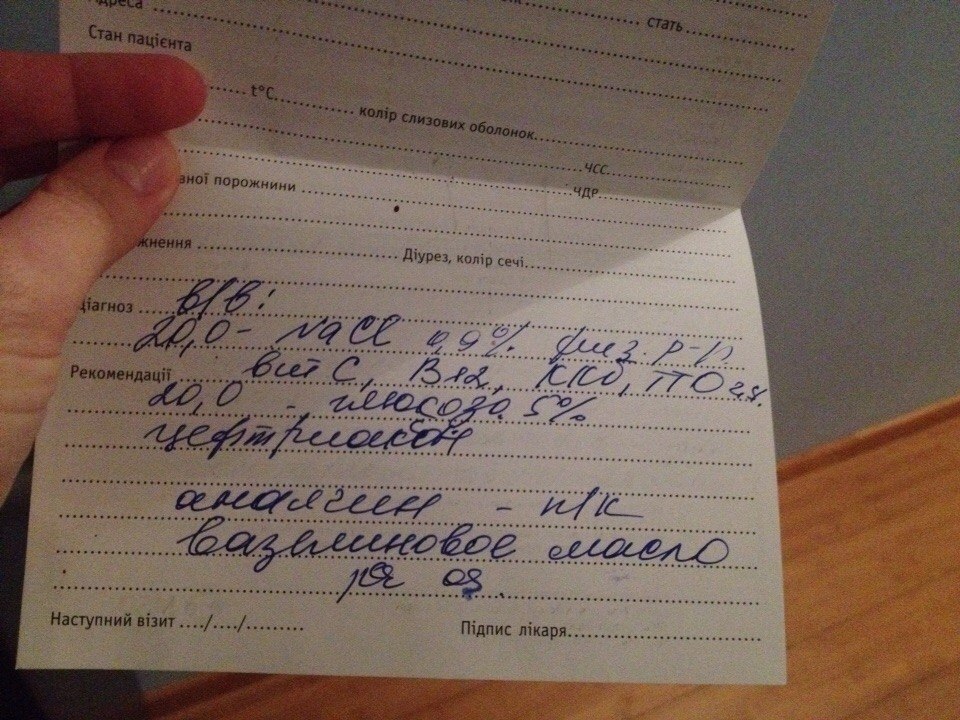 Адреса
стать
Стан пацієнта
t°C
колір слизових оболонок
ЧСС
ЧДР
вної порожнини
жнення
Діурез, колір сечі
діагноз
в/в:
20,0 - NaCl 0,9% физ. р-р
Рекомендації
вит С, В12, ККб,
20,0 - глюкоза 5%
цефтриаксон
анальгин - п/к
вазелиновое масло
per os
Наступний візит ..../..../.........
Підпис лікаря